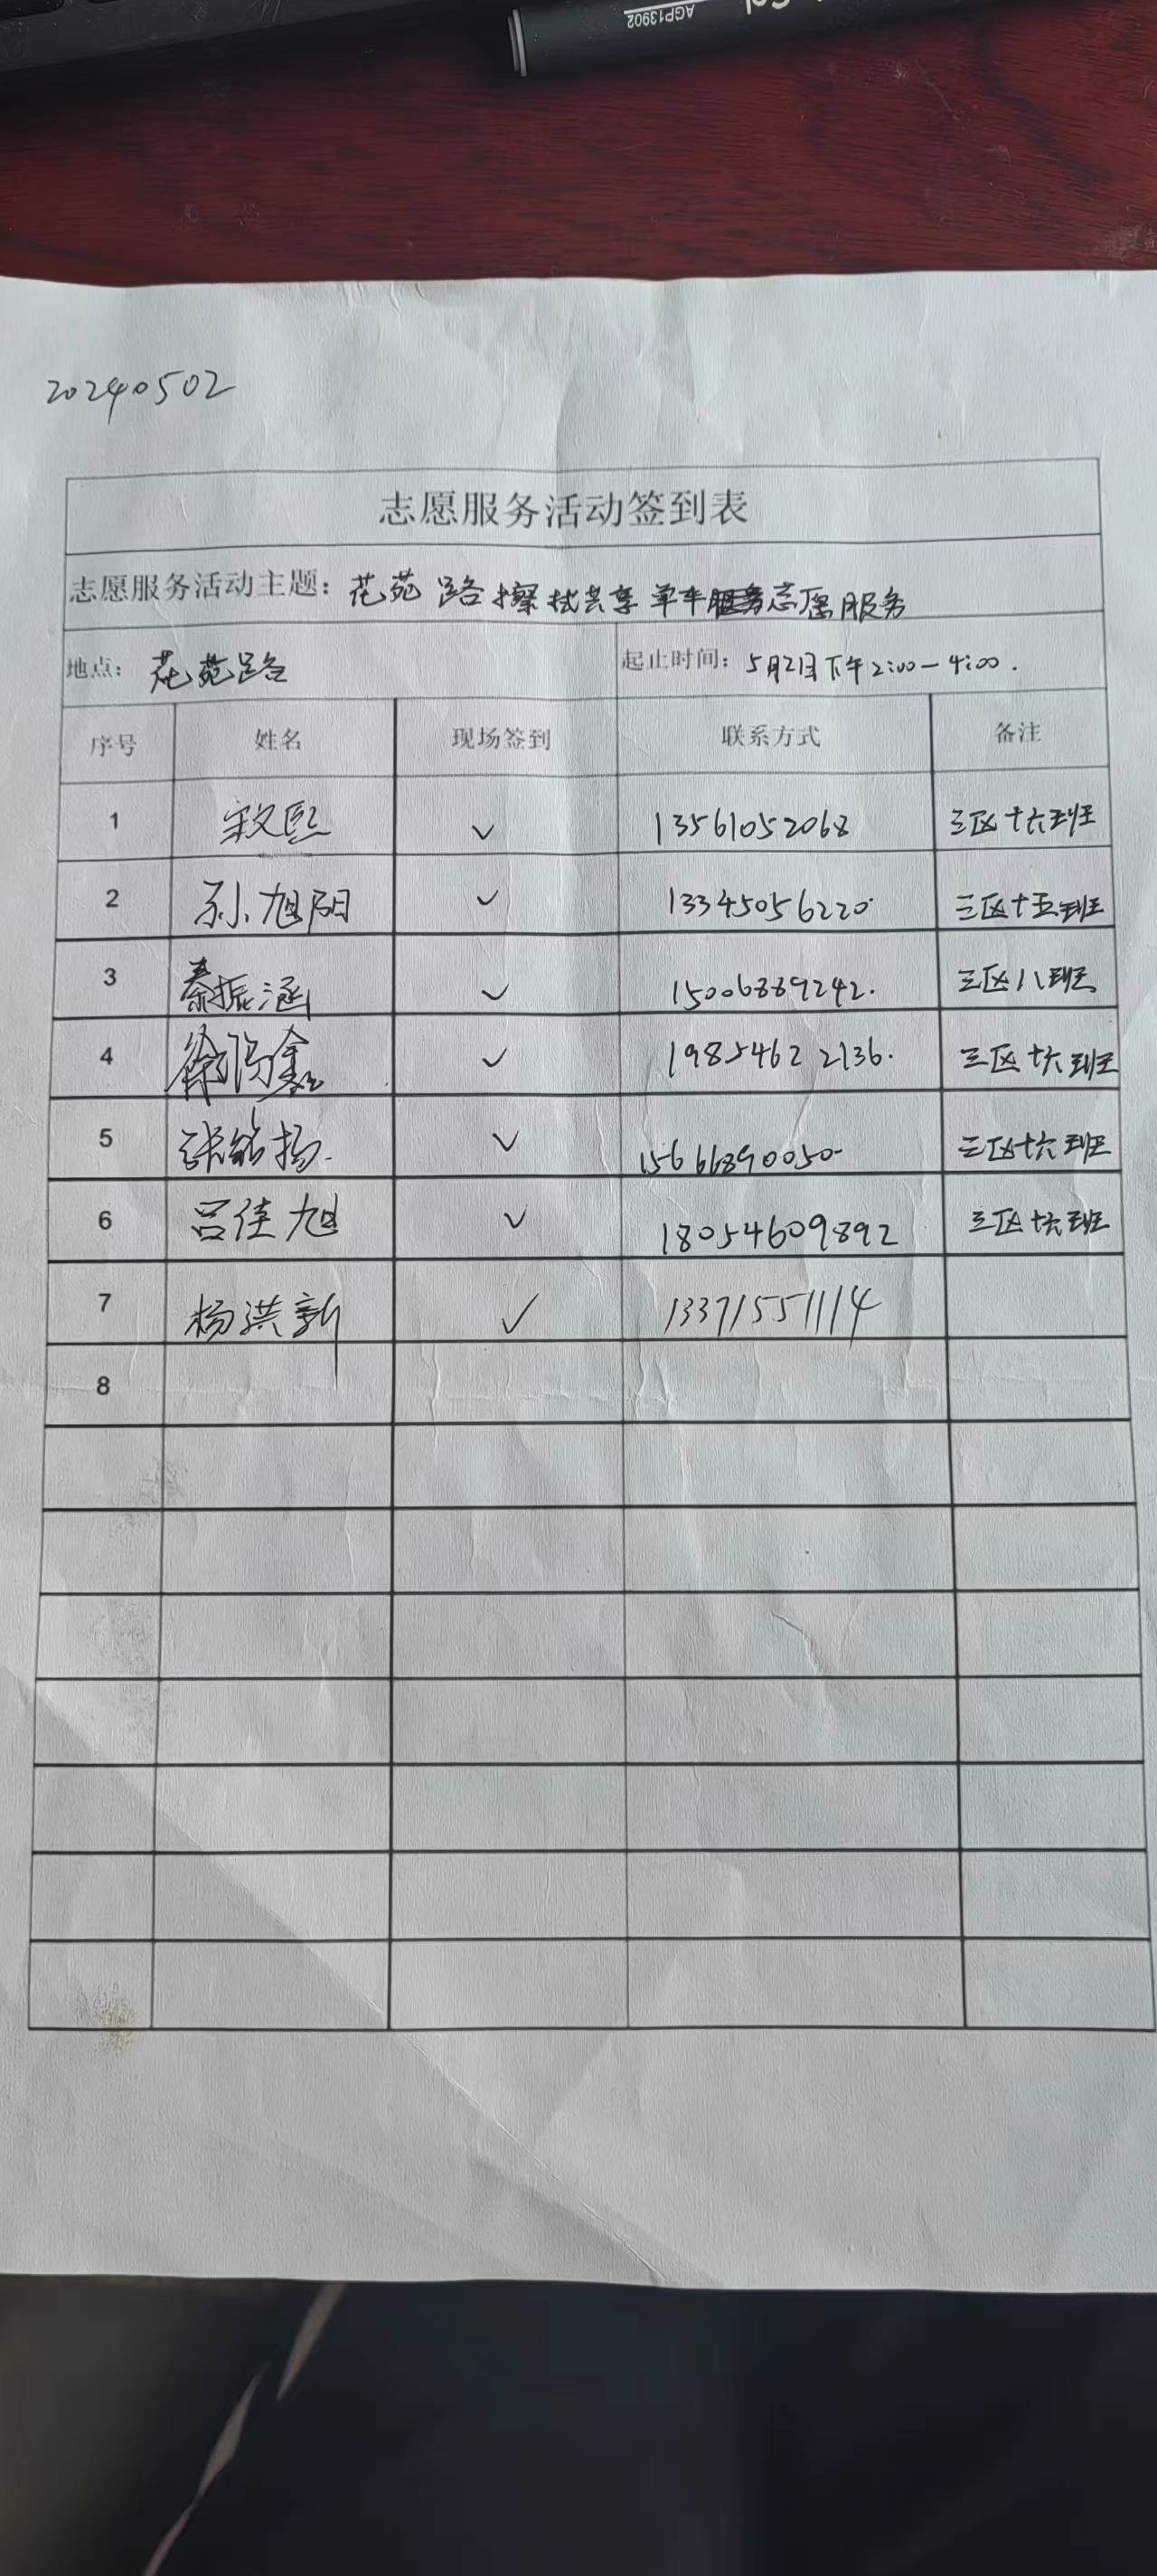 AGP13902
20240502
志愿服务活动签到表
志愿服务活动主题：花苑路擦拭共享单车志愿服务
地点：花苑路 起止时间：5月2日下午2:00-4:00.
序号 姓名 现场签到 联系方式 备注
1 宋文熙 ✓ 13561052068 三区十六班
2 孙旭阳 ✓ 13345056220 三区十五班
3 秦振涵 ✓ 15006889242. 三区八班
4 徐 鑫 ✓ 19854622136. 三区十六班
5 张铭扬. ✓ 15666890050 三区十六班
6 吕佳旭 ✓ 18054609892 三区十六班
7 杨洪新 ✓ 13371551114
8